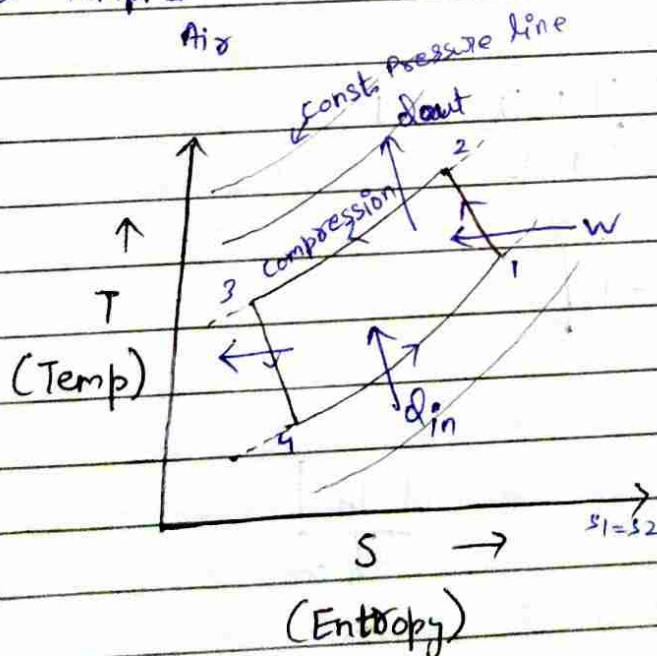 Air
Const. Pressure line
Qout
2
Compression
W
1
3
T
(Temp)
Qin
4
S →
S1=S2
(Entropy)